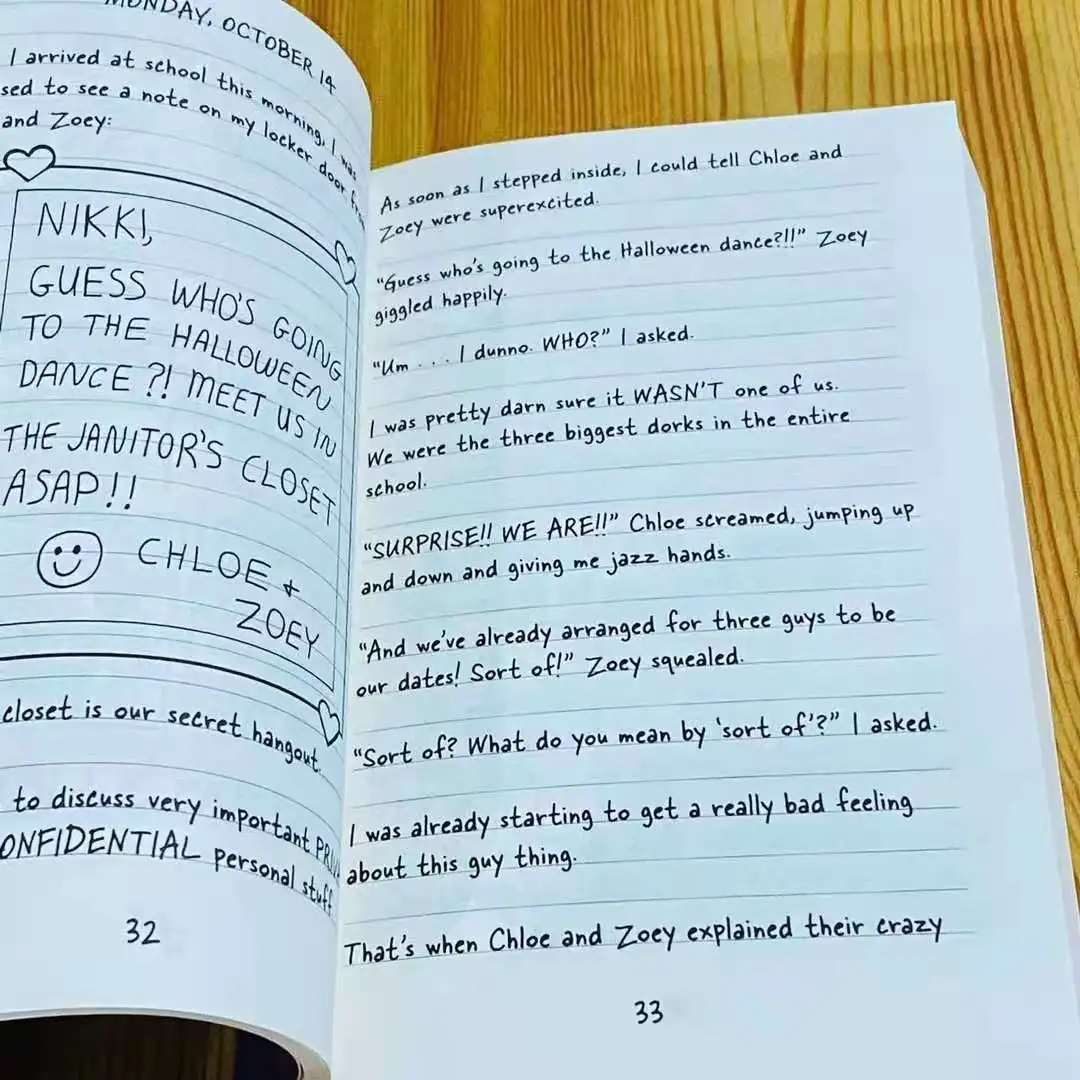 MONDAY, OCTOBER 14
I arrived at school this morning, I was
sed to see a note on my locker door from
and Zoey:
NIKKI,
GUESS WHO'S GOING
TO THE HALLOWEEN
DANCE?! MEET US IN
THE JANITOR'S CLOSET
ASAP!!
CHLOE &
ZOEY
closet is our secret hangout.
to discuss very important
ONFIDENTIAL personal stuff
32
As soon as I stepped inside, I could tell Chloe and
Zoey were superexcited.
"Guess who's going to the Halloween dance?!!" Zoey
giggled happily.
"Um . . . I dunno. WHO?" I asked.
I was pretty darn sure it WASN'T one of us.
We were the three biggest dorks in the entire
school.
"SURPRISE!! WE ARE!!" Chloe screamed, jumping up
and down and giving me jazz hands.
"And we've already arranged for three guys to be
our dates! Sort of!" Zoey squealed.
"Sort of? What do you mean by 'sort of'?" I asked.
I was already starting to get a really bad feeling
about this guy thing.
That's when Chloe and Zoey explained their crazy
33